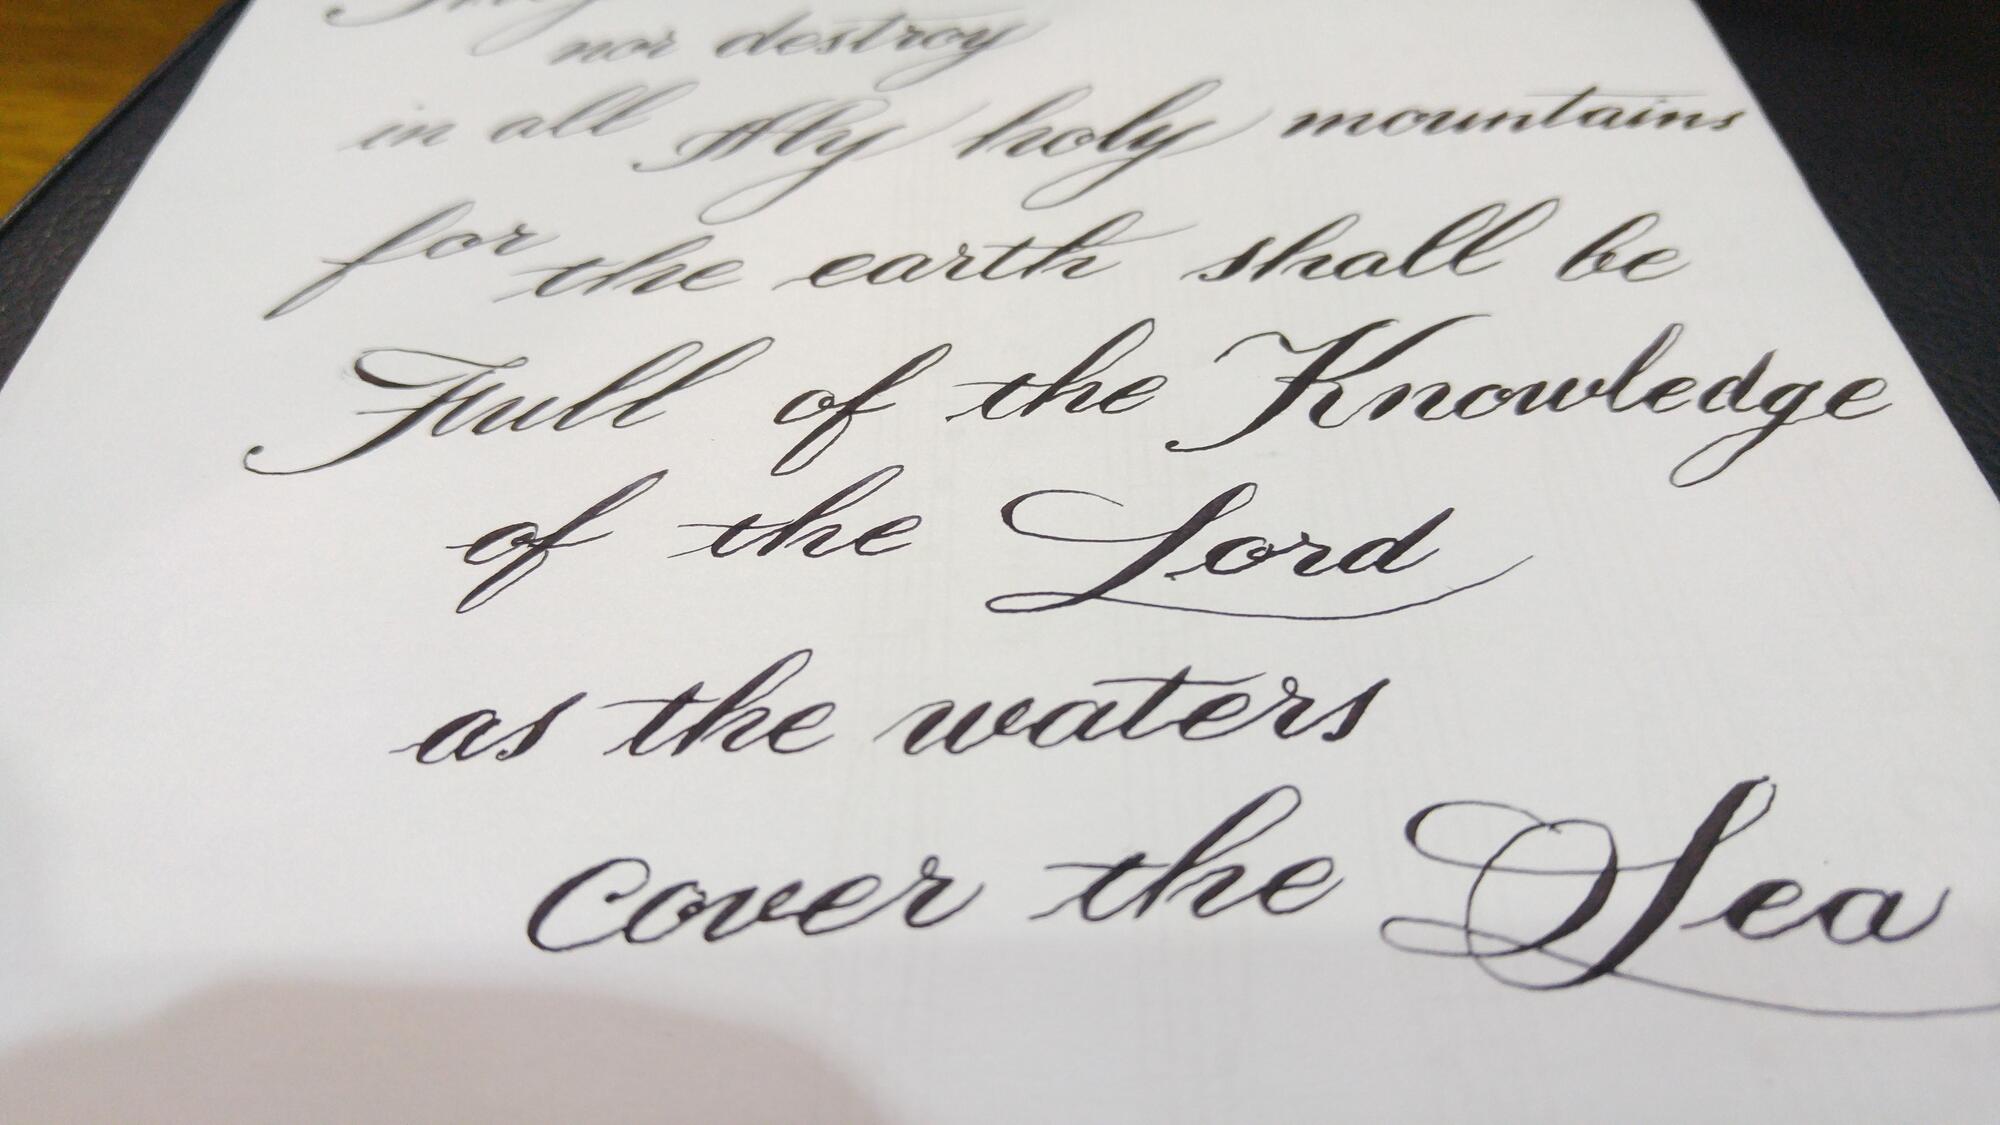 They
nor destroy
in all My holy mountains
for the earth shall be
Full of the Knowledge
of the Lord
as the waters
cover the Sea